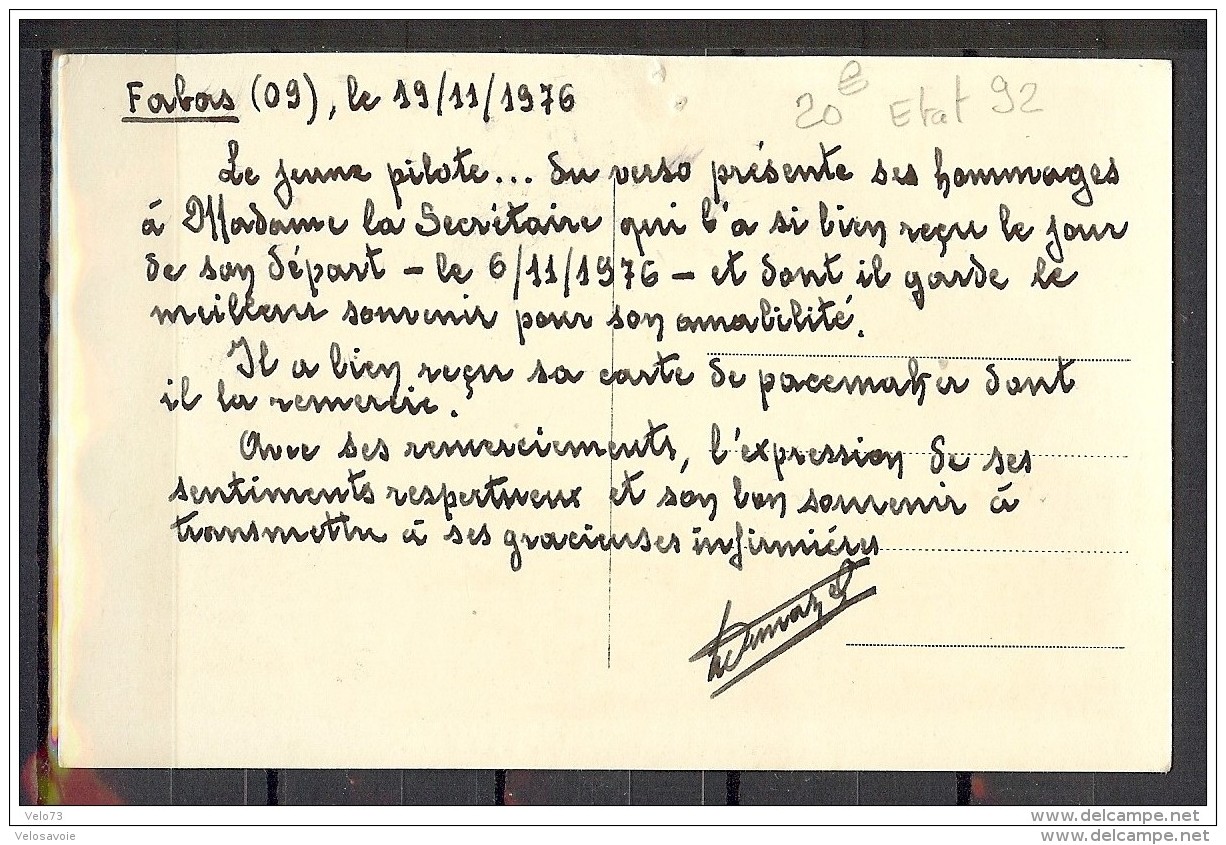 Fabas (09), le 19/11/1976
20e Etat 92
Le jeune pilote... du verso présente ses hommages
à Madame la Secrétaire qui l'a si bien reçu le jour
de son départ - le 6/11/1976 - et dont il garde le
meilleur souvenir pour son amabilité.
Il a bien reçu sa carte de pacemaker dont
il la remercie.
Avec ses remerciements, l'expression de ses
sentiments respectueux et son bon souvenir à
transmettre à ses gracieuses infirmières
Velo73
www.delcampe.net
Velosavoie
www.delcampe.net